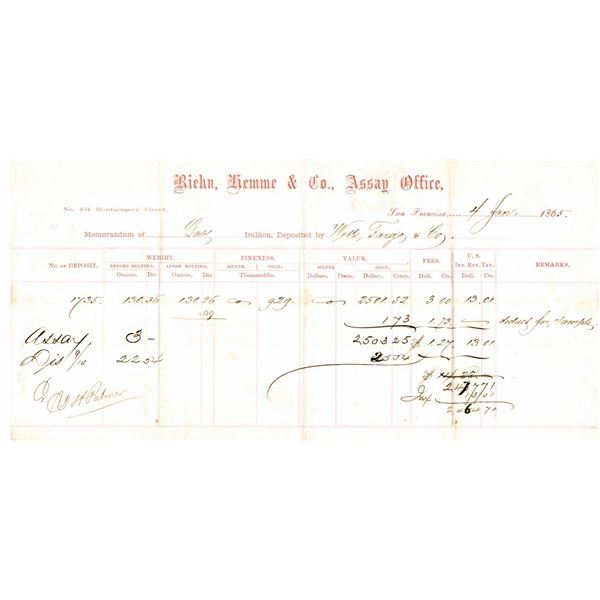 Riehn, Hemme & Co., Assay Office,
No. 434 Montgomery Street.
San Francisco, 4 Jan. 1865.
Memorandum of Bullion, Deposited by Wells, Fargo, & Co.
No. of Deposit. WEIGHT. FINENESS. VALUE. FEES. U. S. Int. Rev. Tax. REMARKS.
BEFORE MELTING. AFTER MELTING. SILVER. GOLD. SILVER GOLD.
Ounces. Dec Ounces. Dec Thousandths. Dollars. Cents. Dollars. Cents. Doll. Cts. Doll. Cts.
1735. 130.36 130.26 929. 2501 52 3 00 13 01
109 173 1 73 deduct for Sample.
Assay 3 - 2503 25 $ 1 27 13 01
Dis 9/10 22 54 2504
2 4 7 7 71
Palmer Tax 13 01
2 4 6 4 70